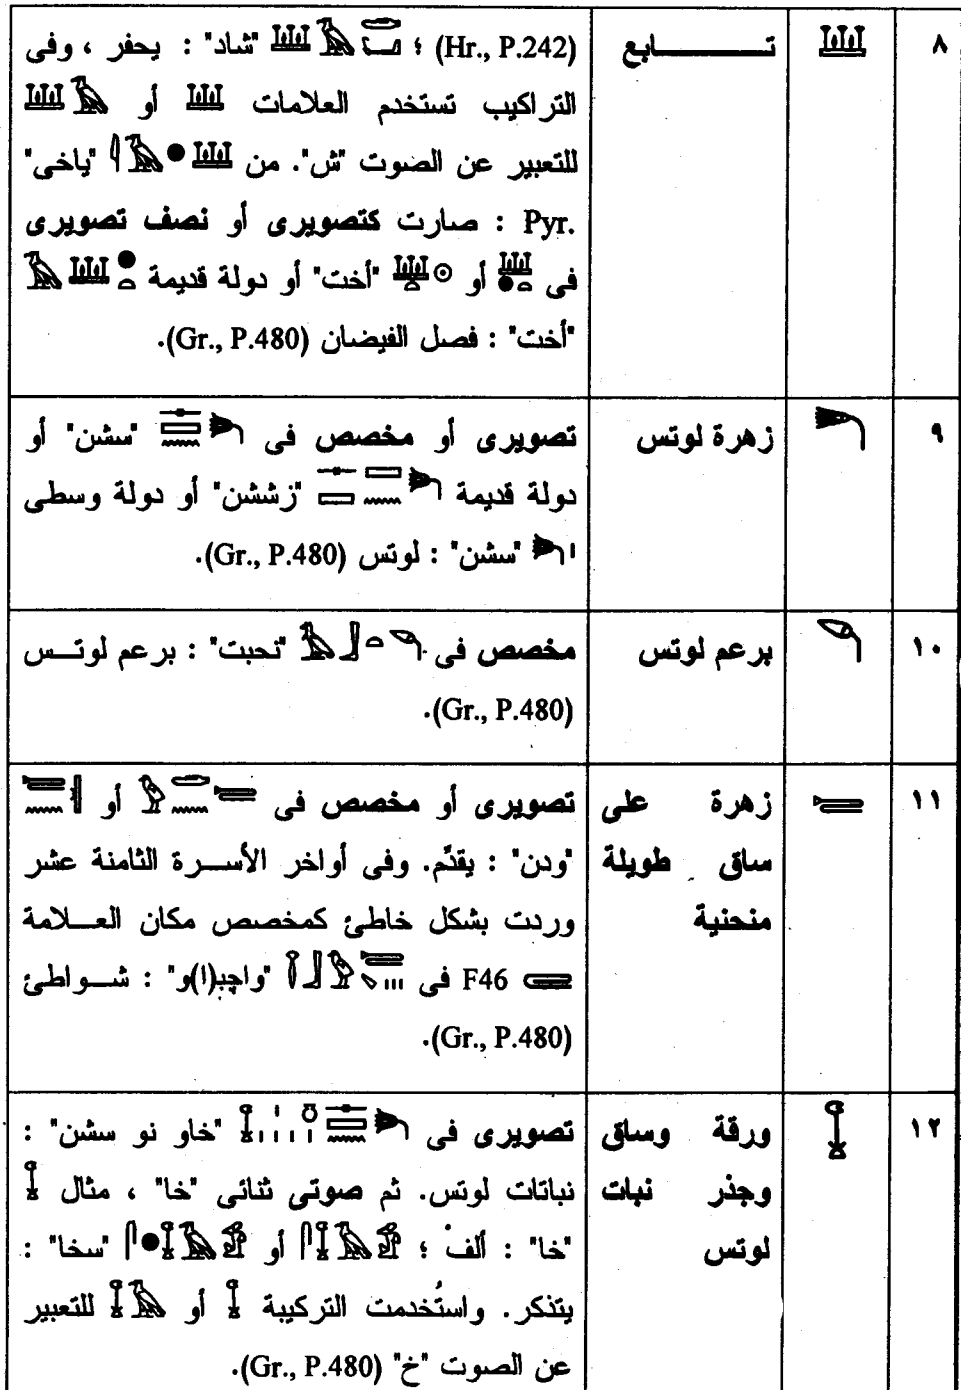 ٨ 𓆷 تـــــابع (Hr., P.242) ؛ "شاد" : يحفر ، وفى
التراكيب تستخدم العلامات 𓆷 أو 𓆷𓄿
للتعبير عن الصوت "ش". من "ياخى"
Pyr. : صارت كتصويرى أو نصف تصويرى
فى أو "أخت" أو دولة قديمة
"أخت" : فصل الفيضان (Gr., P.480).
٩ 𓆸 زهرة لوتس تصويرى أو مخصص فى "سشن" أو
دولة قديمة "زششن" أو دولة وسطى
"سشن" : لوتس (Gr., P.480).
١٠ 𓆹 برعم لوتس مخصص فى "نحبت" : برعم لوتــس
(Gr., P.480).
١١ 𓆺 زهرة على تصويرى أو مخصص فى أو
ساق طويلة "ودن" : يقدّم. وفى أواخر الأســرة الثامنة عشر
منحنية وردت بشكل خاطئ كمخصص مكان العــلامة
F46 فى "واچب(ا)و" : شــواطئ
(Gr., P.480).
١٢ 𓆼 ورقة وساق تصويرى فى "خاو نو سشن" :
وجذر نبات نباتات لوتس. ثم صوتى ثنائى "خا" ، مثال 𓆼
لوتس "خا" : ألف ؛ أو "سخا" :
يتذكر. واستُخدمت التركيبة 𓆼 أو 𓆼𓄿 للتعبير
عن الصوت "خ" (Gr., P.480).